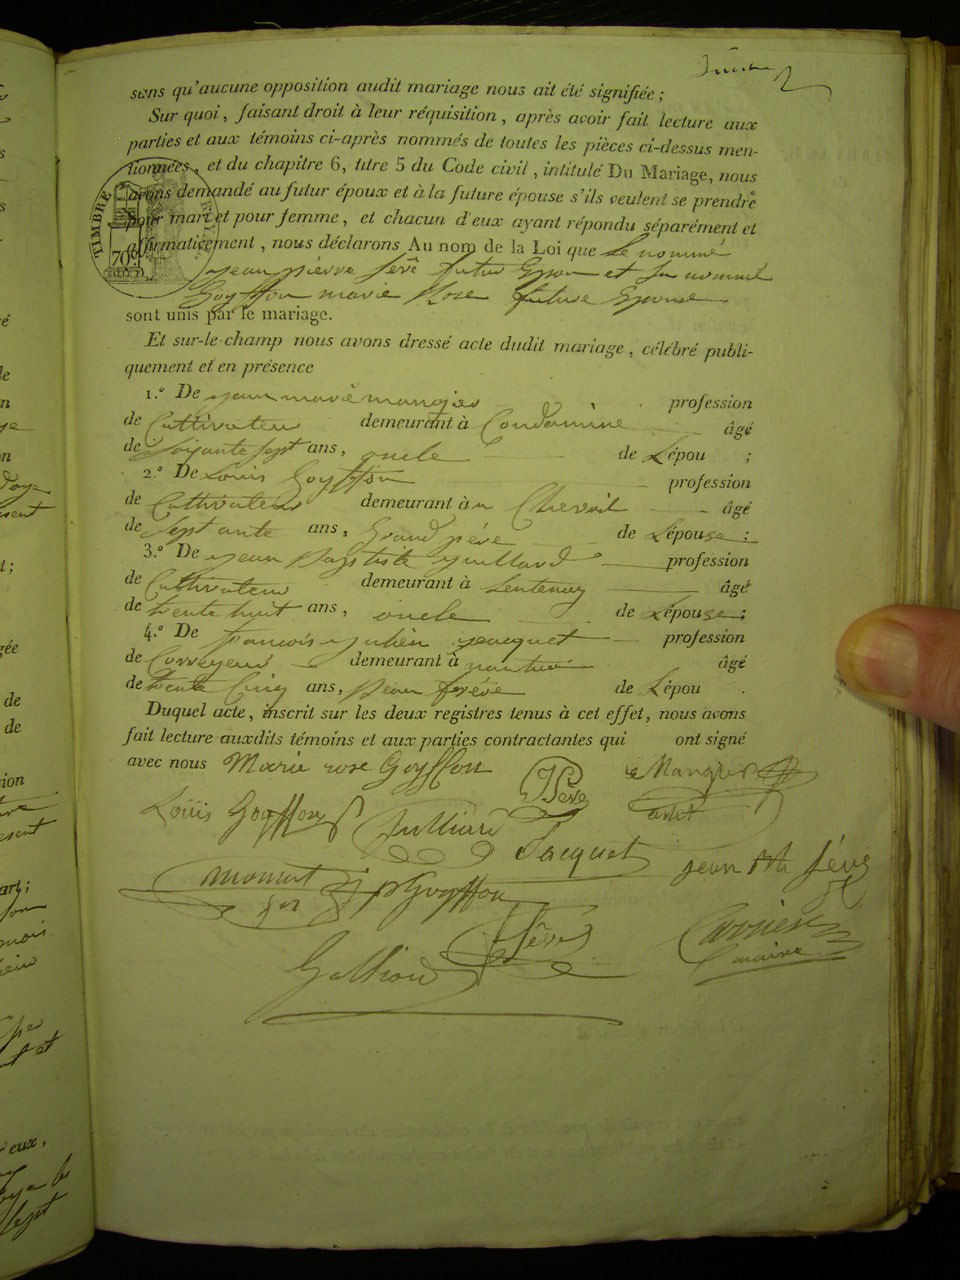 sans qu'aucune opposition audit mariage nous ait été signifiée ;
Sur quoi, faisant droit à leur réquisition, après avoir fait lecture aux
parties et aux témoins ci-après nommés de toutes les pièces ci-dessus men-
tionnées, et du chapitre 6, titre 5 du Code civil, intitulé Du Mariage, nous
avons demandé au futur époux et à la future épouse s'ils veulent se prendre
pour mari et pour femme, et chacun d'eux ayant répondu séparément et
affirmativement, nous déclarons Au nom de la Loi que le nommé
jean pierre sève futur Epoux et la nommée
Goyffon marie Rose future Epouse
sont unis par le mariage.
TIMBRE ROYAL
70
Et sur-le-champ nous avons dressé acte dudit mariage, célébré publi-
quement et en présence
1.° De jean marie mangier profession
de Cultivateur demeurant à Condamine âgé
de soixante sept ans, oncle de L'épou ;
2.° De Louis Goyffon profession
de Cultivateur demeurant à Chevril âgé
de septante ans, Grand père de L'épouse ;
3.° De jean Baptiste juillard profession
de Cultivateur demeurant à Lentenay âgé
de trente huit ans, oncle de L'épouse ;
4.° De françois julien jacquet profession
de Corroyeur demeurant à nantua âgé
de trente Cinq ans, Beau frère de L'épou .
Duquel acte, inscrit sur les deux registres tenus à cet effet, nous avons
fait lecture auxdits témoins et aux parties contractantes qui ont signé
avec nous Marie rose Goyffon JPSeve Mangier
Louis Goyffon Julliard
Jacquet jean Mie Séve
momet pGoyffon
Sève Carrier
maire
Galliard